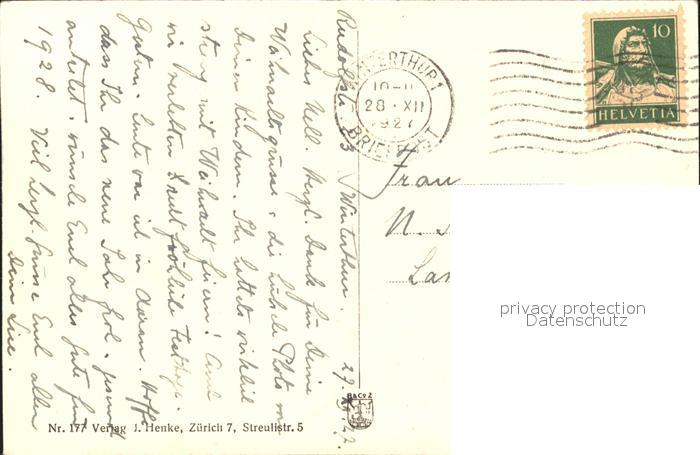 Rudolfstr. 33 Winterthur. 27. XII. 27.
Liebes Nell. Herzl. Dank für Deine
Weihnachtsgrüsse & die hübsche Photo von
Deinen Kindern. Ihr hattet wirklich
streng mit Weihnacht feiern! Auch
wir verlebten recht fröhliche Festtage.
Gestern war ich in Aarau. Hoffe
dass Ihr das neue Jahr
antretet & wünsche Euch alles Gute für
1928. Viel herzl. Grüsse Euch allen
Deine Lise.
WINTERTHUR 1
10-11
28. XII
1927
BRIEFPOST
10
HELVETIA
Frau
N.
privacy protection
Datenschutz
R&Co Z
Nr. 177 Verlag J. Henke, Zürich 7, Streulistr. 5